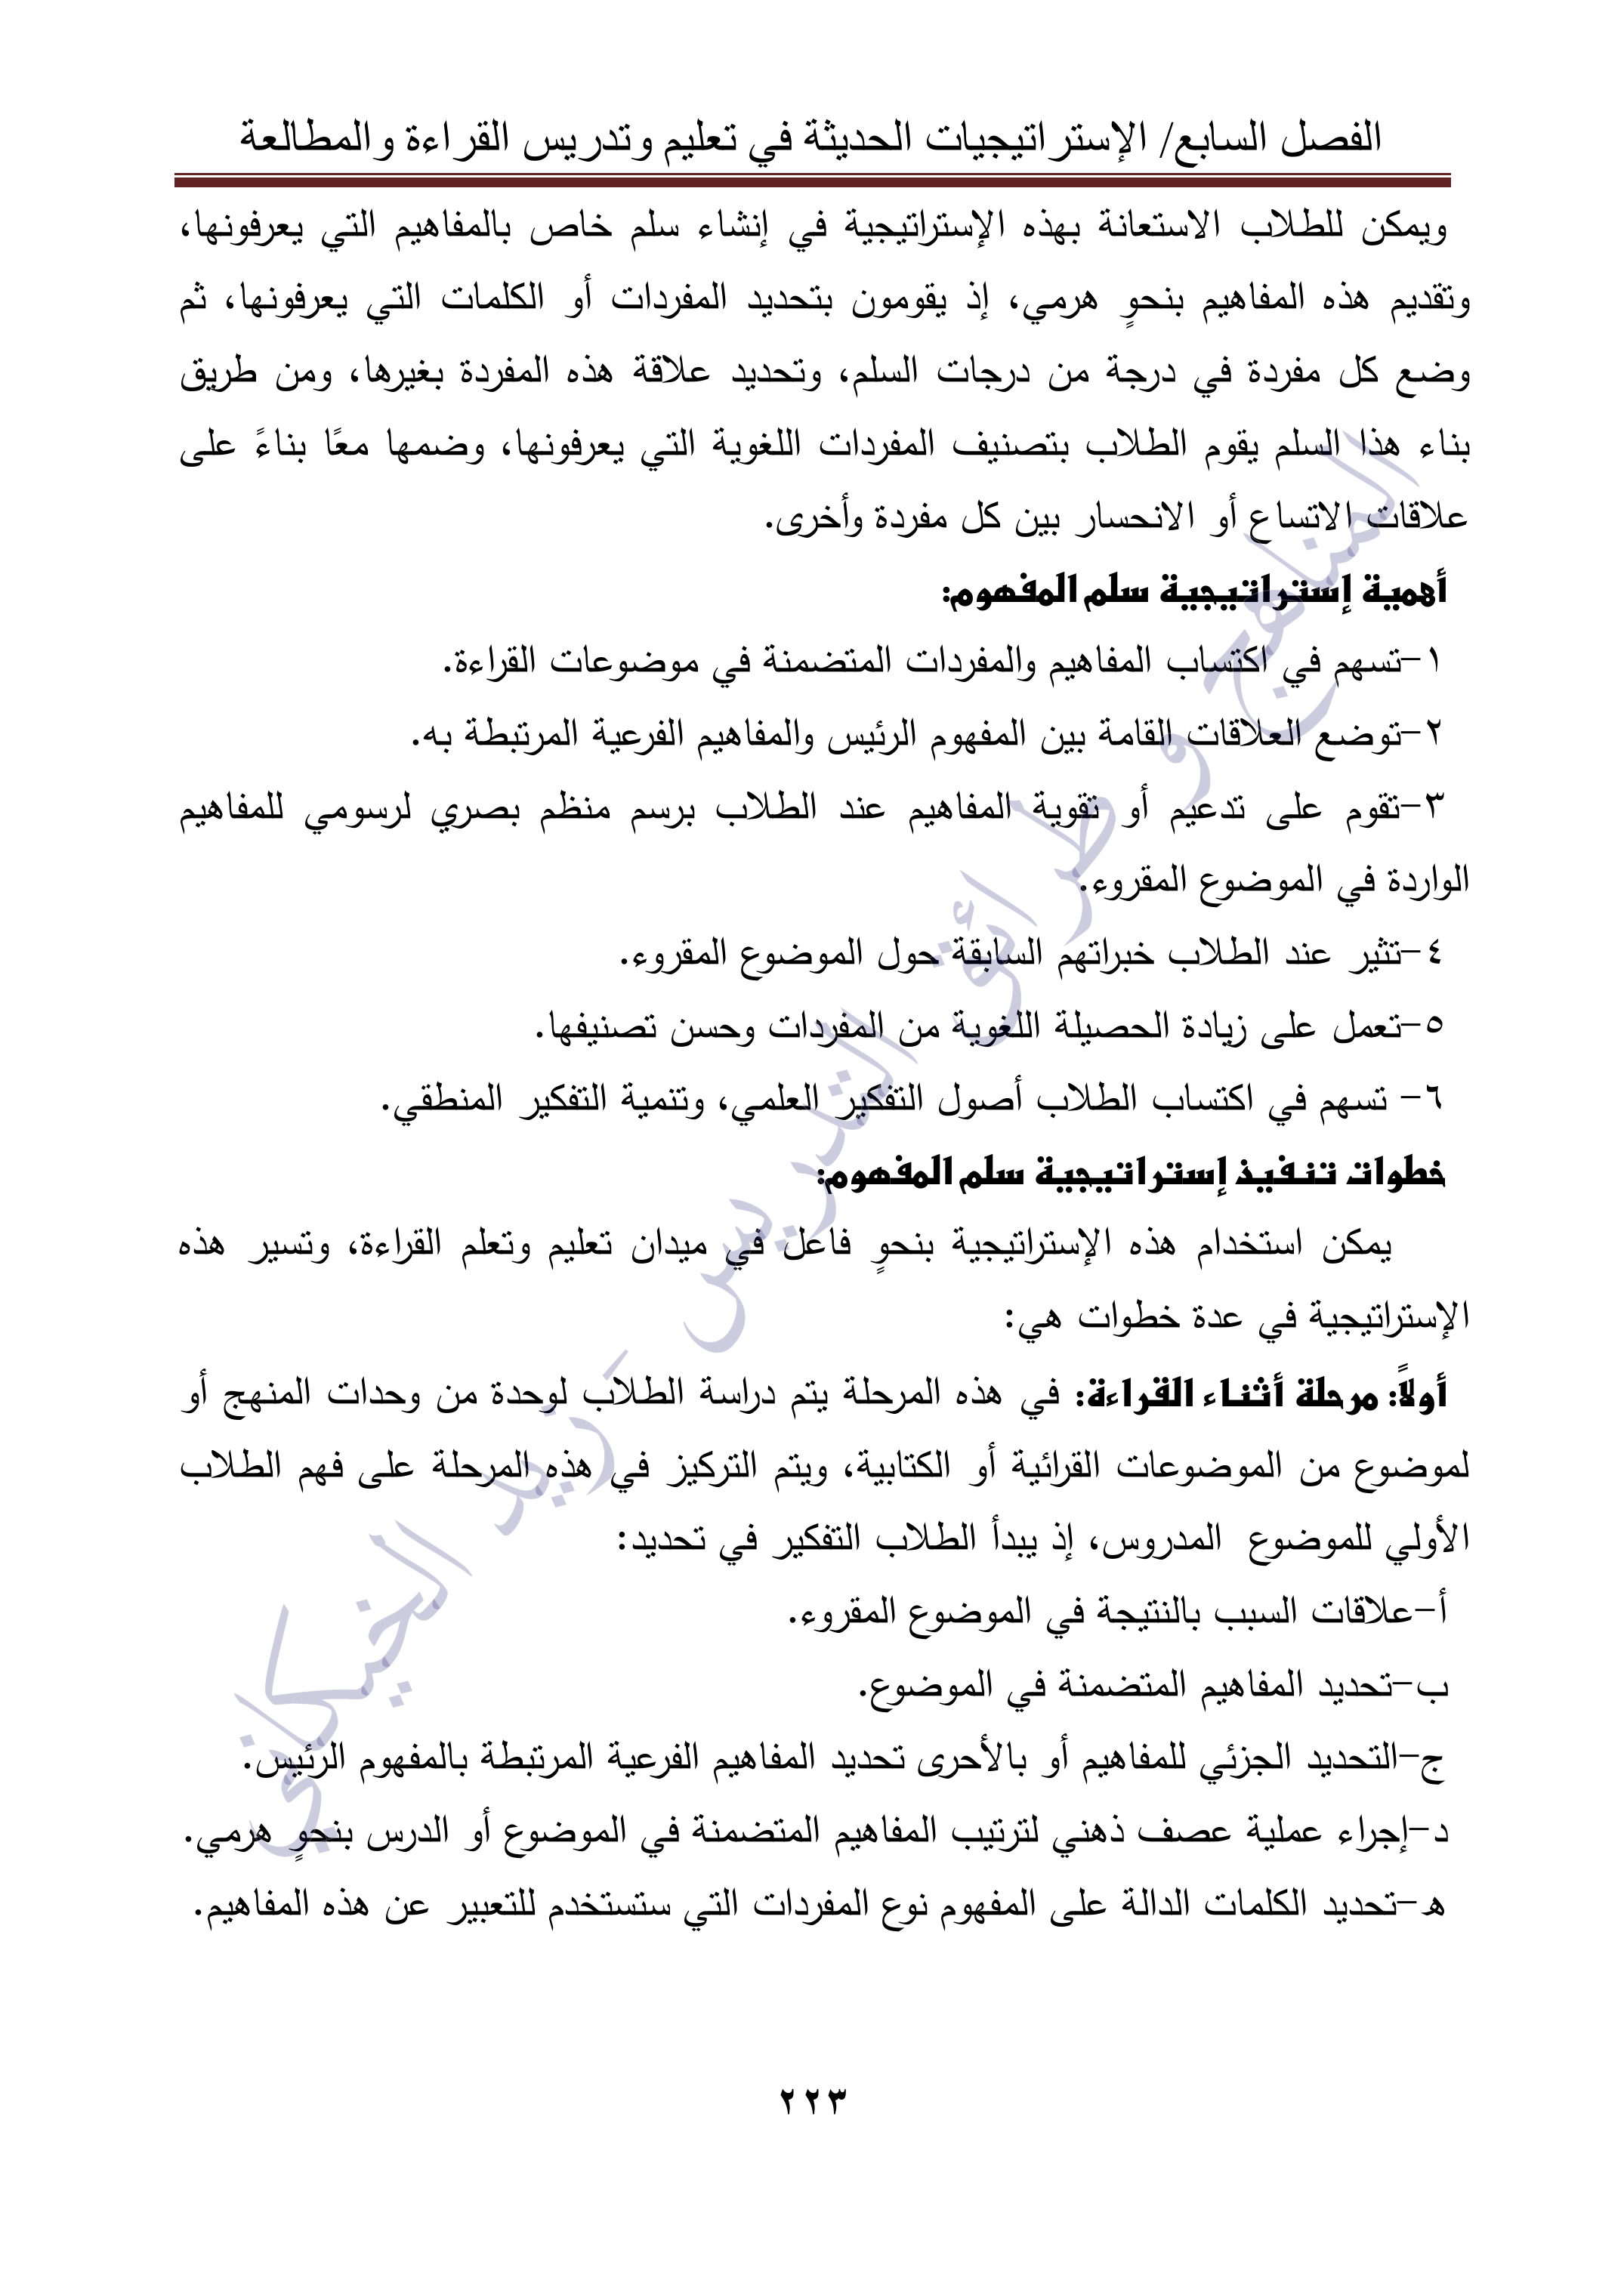 الفصل السابع/ الإستراتيجيات الحديثة في تعليم وتدريس القراءة والمطالعة
ويمكن للطلاب الاستعانة بهذه الإستراتيجية في إنشاء سلم خاص بالمفاهيم التي يعرفونها،
وتقديم هذه المفاهيم بنحوٍ هرمي، إذ يقومون بتحديد المفردات أو الكلمات التي يعرفونها، ثم
وضع كل مفردة في درجة من درجات السلم، وتحديد علاقة هذه المفردة بغيرها، ومن طريق
بناء هذا السلم يقوم الطلاب بتصنيف المفردات اللغوية التي يعرفونها، وضمها معًا بناءً على
علاقات الاتساع أو الانحسار بين كل مفردة وأخرى.
أهمية إستراتيجية سلم المفهوم:
١-تسهم في اكتساب المفاهيم والمفردات المتضمنة في موضوعات القراءة.
٢-توضع العلاقات القامة بين المفهوم الرئيس والمفاهيم الفرعية المرتبطة به.
٣-تقوم على تدعيم أو تقوية المفاهيم عند الطلاب برسم منظم بصري لرسومي للمفاهيم
الواردة في الموضوع المقروء.
٤-تثير عند الطلاب خبراتهم السابقة حول الموضوع المقروء.
٥-تعمل على زيادة الحصيلة اللغوية من المفردات وحسن تصنيفها.
٦- تسهم في اكتساب الطلاب أصول التفكير العلمي، وتنمية التفكير المنطقي.
خطوات تنفيذ إستراتيجية سلم المفهوم:
يمكن استخدام هذه الإستراتيجية بنحوٍ فاعل في ميدان تعليم وتعلم القراءة، وتسير هذه
الإستراتيجية في عدة خطوات هي:
أولاً: مرحلة أثناء القراءة: في هذه المرحلة يتم دراسة الطلاب لوحدة من وحدات المنهج أو
لموضوع من الموضوعات القرائية أو الكتابية، ويتم التركيز في هذه المرحلة على فهم الطلاب
الأولي للموضوع المدروس، إذ يبدأ الطلاب التفكير في تحديد:
أ-علاقات السبب بالنتيجة في الموضوع المقروء.
ب-تحديد المفاهيم المتضمنة في الموضوع.
ج-التحديد الجزئي للمفاهيم أو بالأحرى تحديد المفاهيم الفرعية المرتبطة بالمفهوم الرئيس.
د-إجراء عملية عصف ذهني لترتيب المفاهيم المتضمنة في الموضوع أو الدرس بنحوٍ هرمي.
ه-تحديد الكلمات الدالة على المفهوم نوع المفردات التي ستستخدم للتعبير عن هذه المفاهيم.
٢٢٣
المناهج و طرائق التدريس - زيد الخيكاني